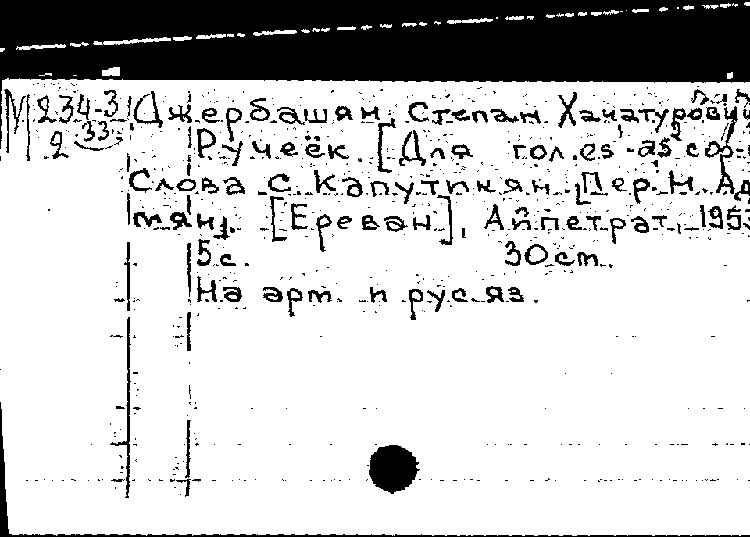 М 234-3 Джербашян, Степан Хачатурович
2 33 Ручеёк. [Для гол. es¹-as² сопр
Слова С. Капутикян. [Пер. Н. Ад
мян]. [Ереван], Айпетрат, 195
5 с. 30 cm.
На арм. и рус. яз.